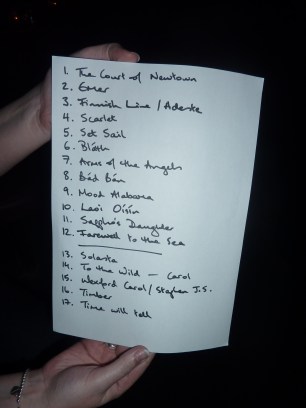 1. The Court of Newtown
2. Emer
3. Finnish Line / Aderka
4. Scarlet
5. Set Sail
6. Bláth
7. Arms of the Angels
8. Bád Bán
9. Mood Alabama
10. Laoi Oisín
11. Sappho's Daughter
12. Farewell to the Sea
13. Solarta
14. To the Wild - Carol
15. Wexford Carol / Stephen J.S.
16. Timber
17. Time will tell